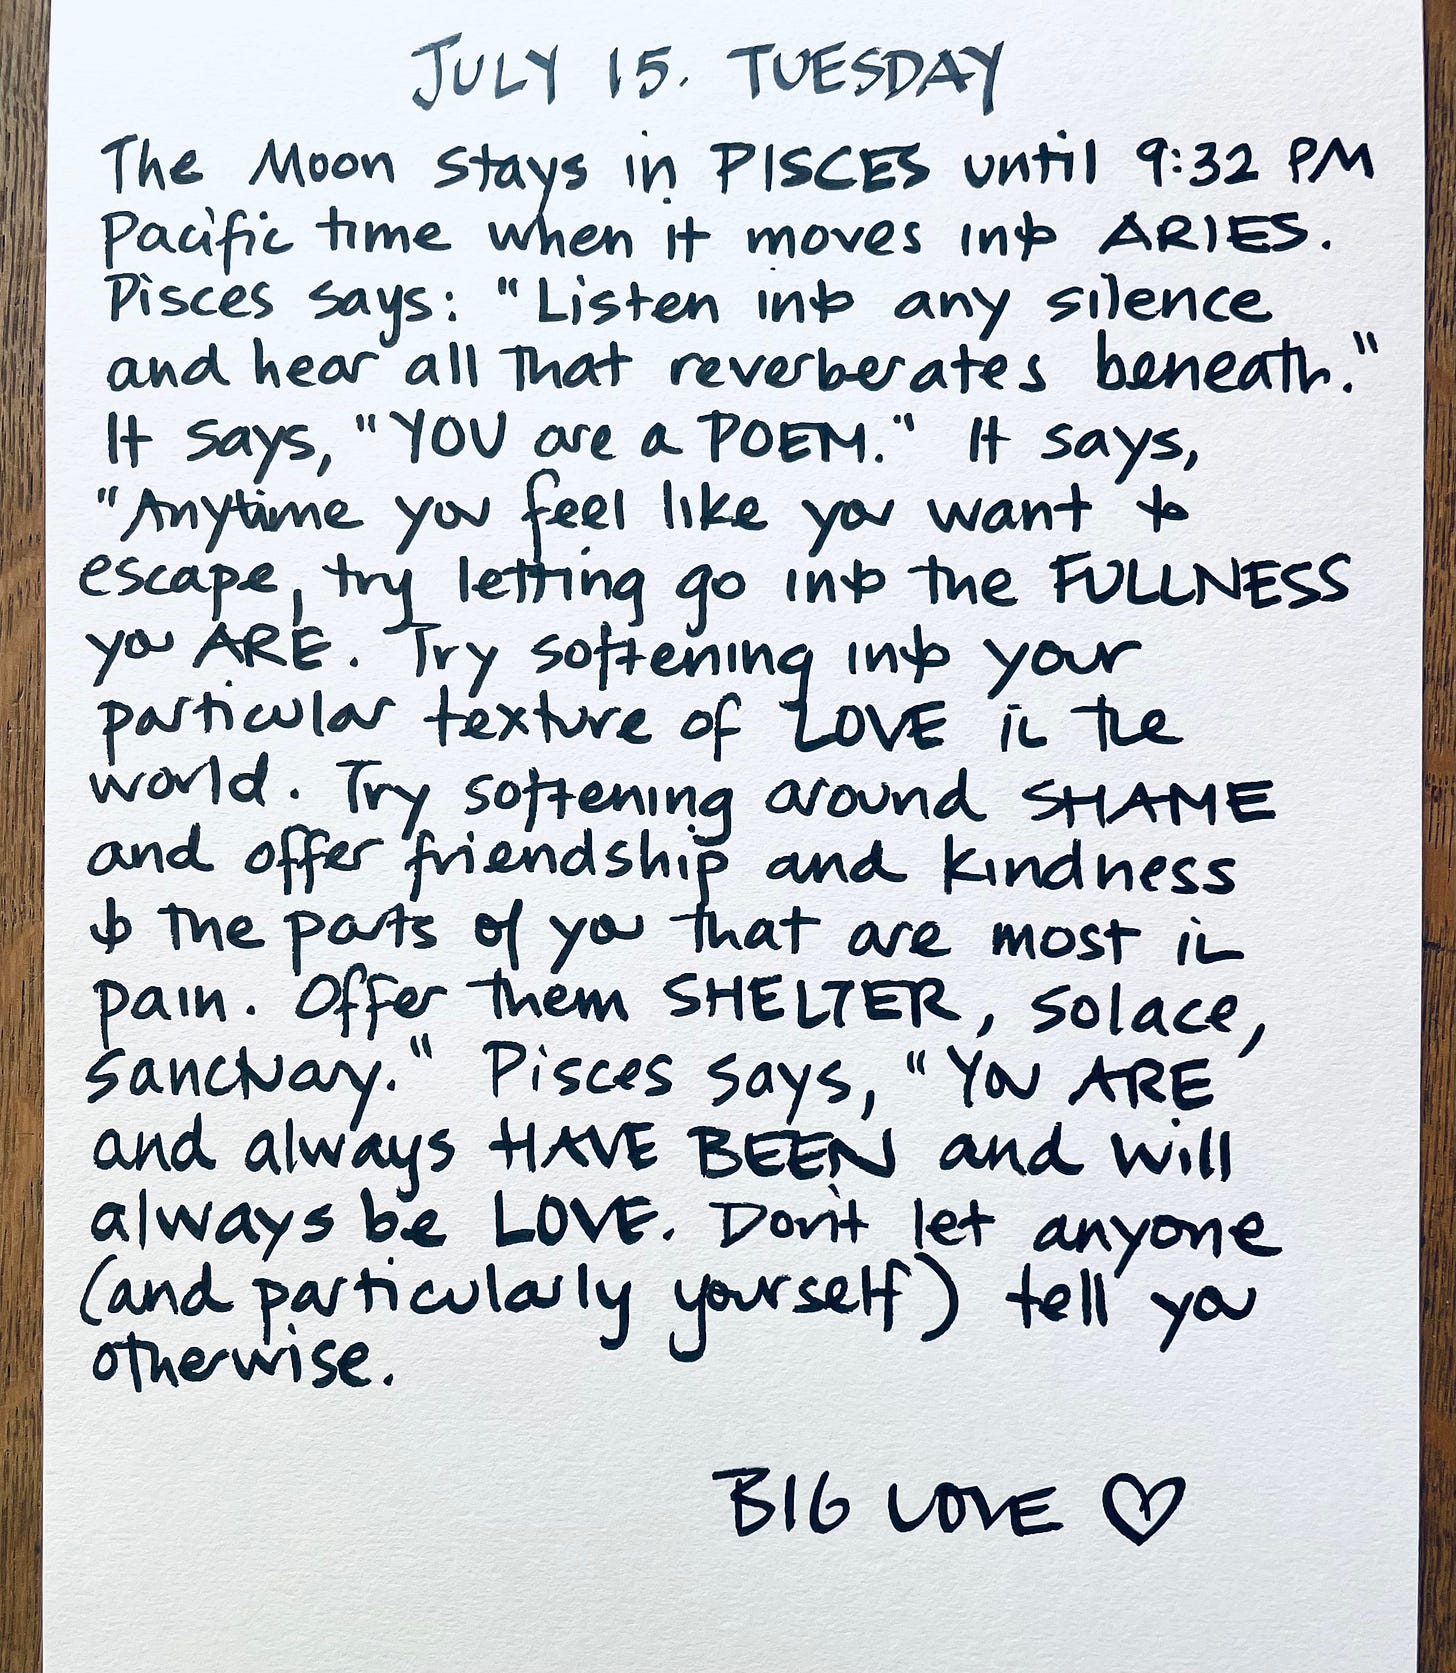 JULY 15. TUESDAY
The Moon stays in PISCES until 9:32 PM
Pacific time when it moves into ARIES.
Pisces says: "Listen into any silence
and hear all that reverberates beneath."
It says, "YOU are a POEM." It says,
"Anytime you feel like you want to
escape, try letting go into the FULLNESS
you ARE. Try softening into your
particular texture of LOVE in the
world. Try softening around SHAME
and offer friendship and kindness
to the parts of you that are most in
pain. Offer them SHELTER, solace,
sanctuary." Pisces says, "You ARE
and always HAVE BEEN and will
always be LOVE. Don't let anyone
(and particularly yourself) tell you
otherwise.
BIG LOVE ♡